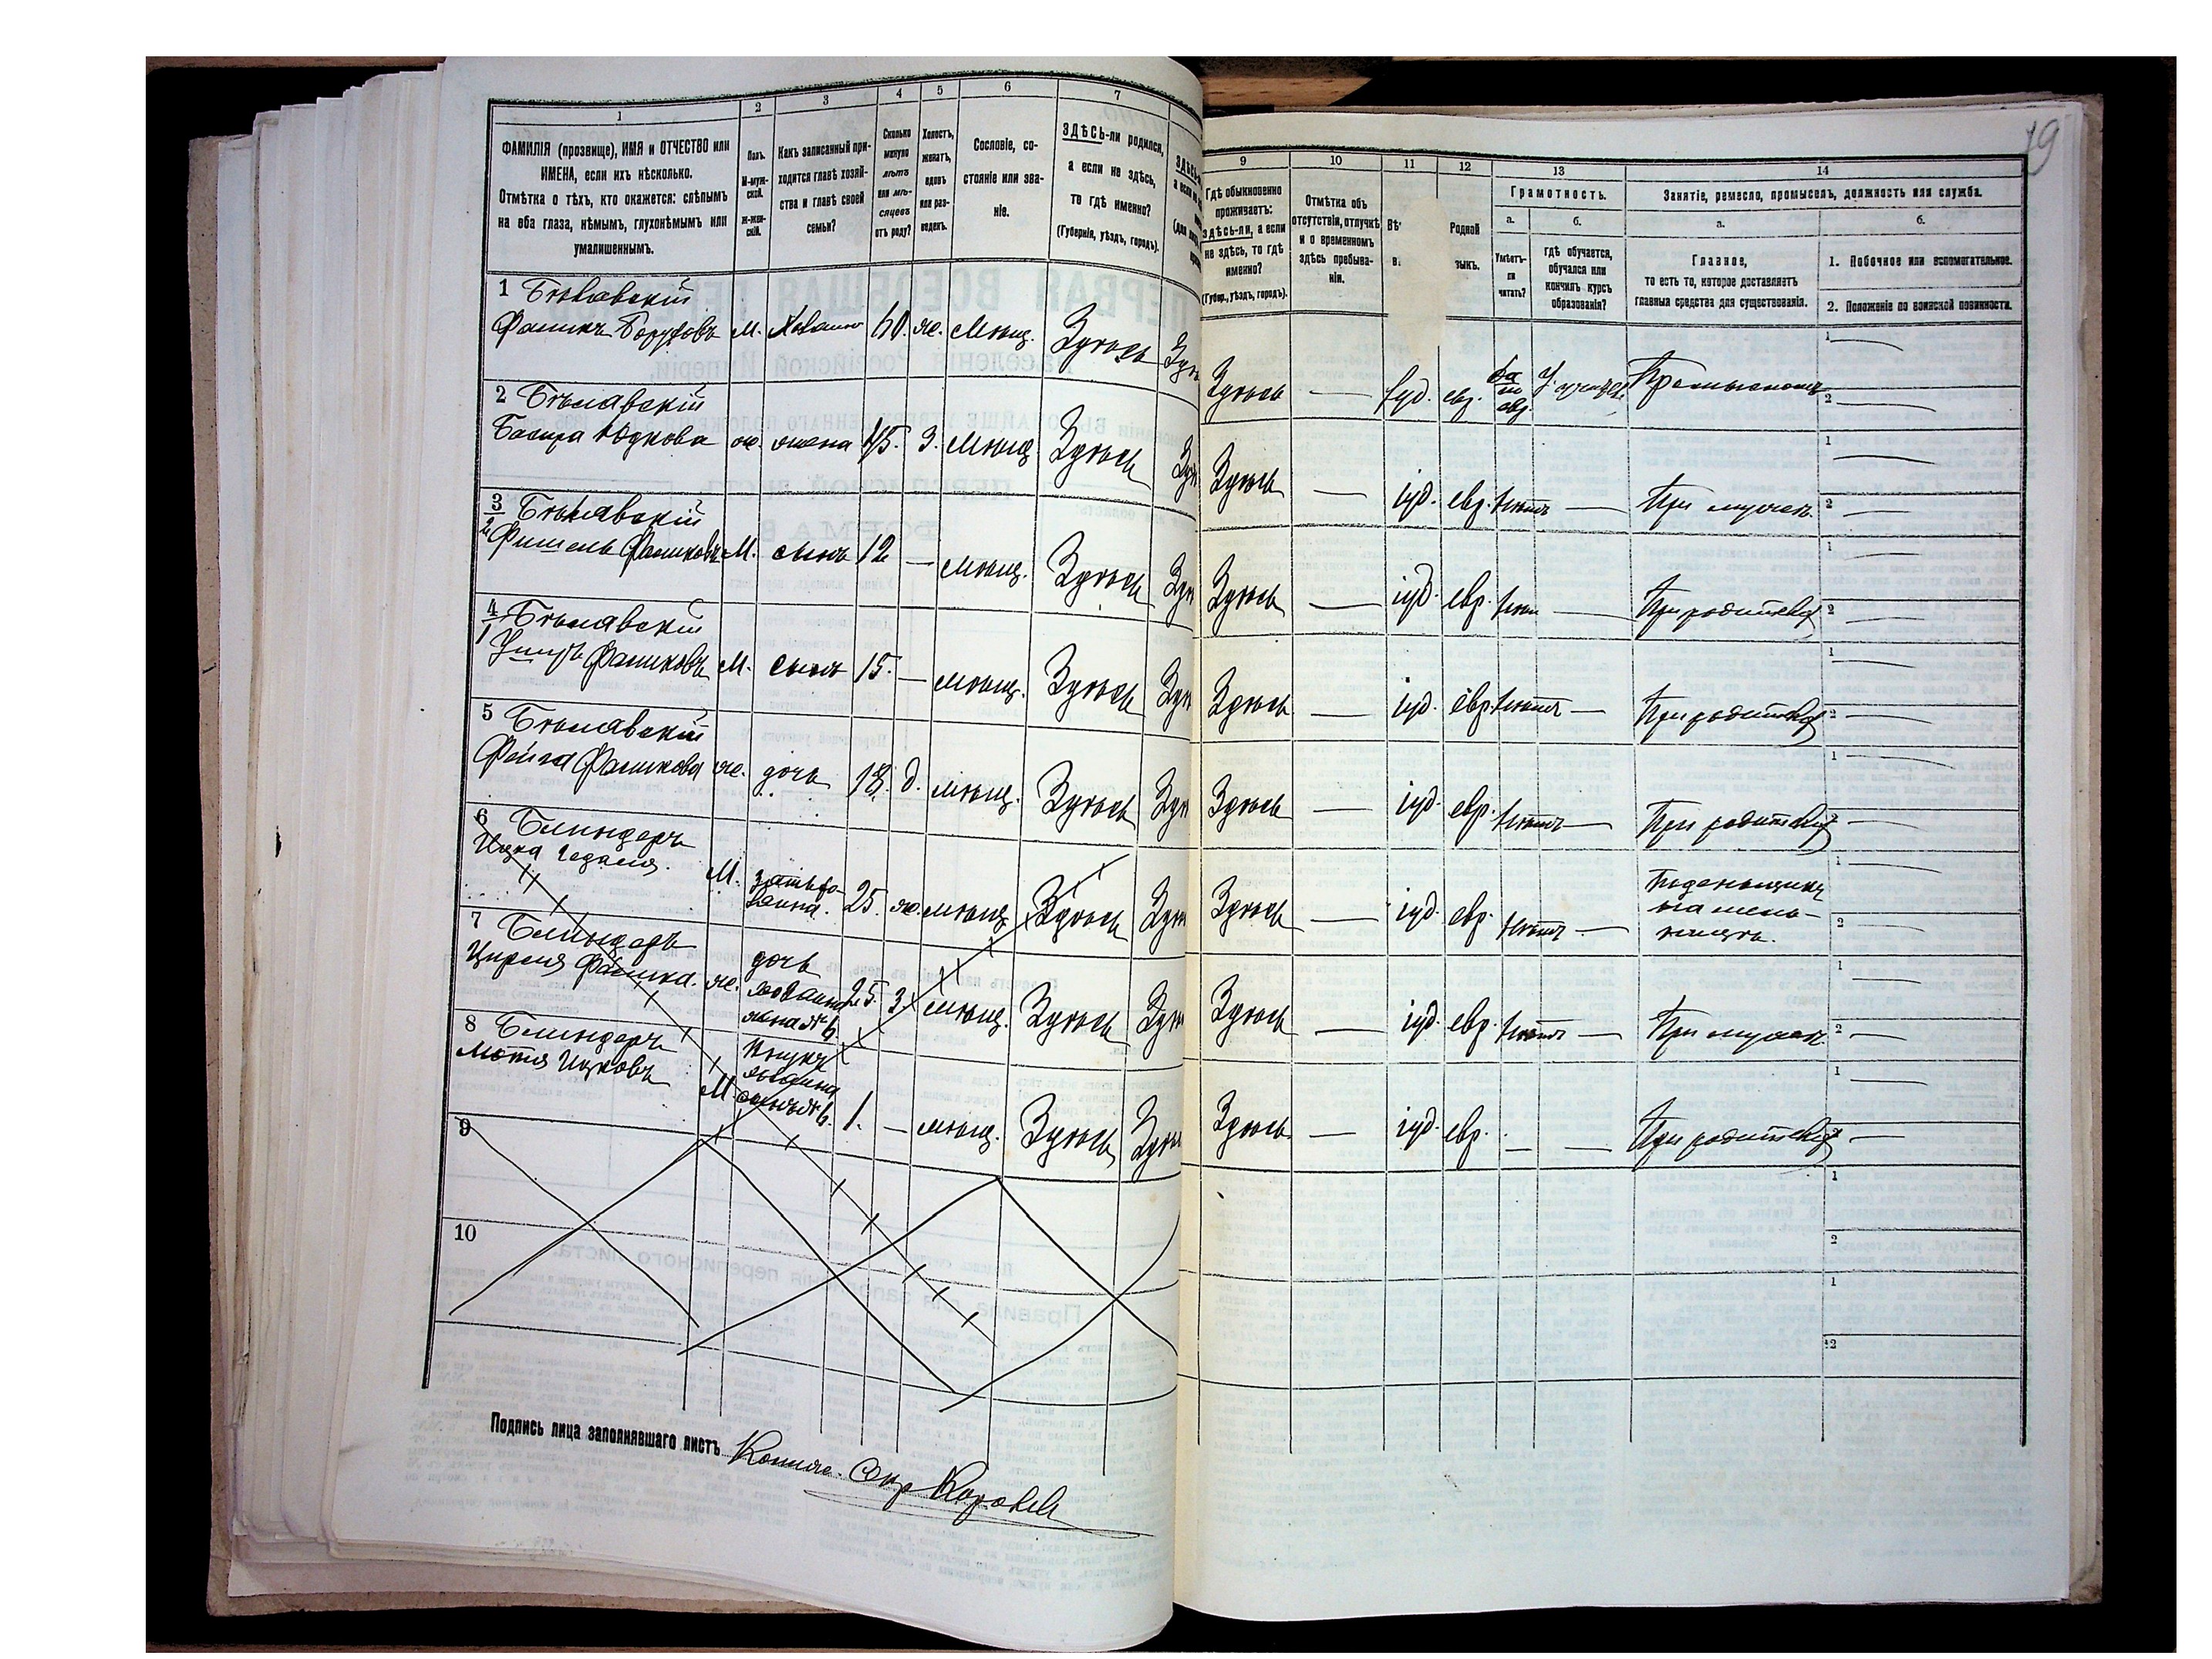 19
1
2
3
4
5
6
7
ФАМИЛІЯ (прозвище), ИМЯ и ОТЧЕСТВО или
ИМЕНА, если ихъ нѣсколько.
Отмѣтка о тѣхъ, кто окажется: слѣпымъ
на оба глаза, нѣмымъ, глухонѣмымъ или
умалишеннымъ.
Полъ.
М-муж-
ской.
ж-жен-
скій.
Какъ записанный при-
ходится главѣ хозяй-
ства и главѣ своей
семьи?
Сколько
минуло
лѣтъ
или мѣ-
сяцевъ
отъ роду?
Холостъ,
женатъ,
вдовъ
или раз-
веденъ.
Сословіе, со-
стояніе или зва-
ніе.
ЗДѢСЬ-ли родился,
а если не здѣсь,
то гдѣ именно?
(Губернія, уѣздъ, городъ).
9
10
11
12
13
14
Гдѣ обыкновенно
проживаетъ:
здѣсь-ли, а если
не здѣсь, то гдѣ
именно?
(Губер., уѣздъ, городъ).
Отмѣтка объ
отсутствіи, отлучкѣ
и о временномъ
здѣсь пребыва-
ніи.
Родной
зыкъ.
Грамотность.
а.
Умѣетъ-
ли
читать?
б.
гдѣ обучается,
обучался или
кончилъ курсъ
образованія?
Занятіе, ремесло, промыселъ, должность или служба.
а.
Главное,
то есть то, которое доставляетъ
главныя средства для существованія.
б.
1. Побочное или вспомогательное.
2. Положеніе по воинской повинности.
1 Бѣлавскій
Фаликъ Боруховъ М. 60. ж. мѣщ. Здѣсь
Здѣсь — іуд. евр. 1 2
2 Бѣлавскій
Басира Юдкова ж. жена 45. З. мѣщ. Здѣсь
Здѣсь — іуд. евр. нѣтъ — При мужѣ. 1 2
3 Бѣлавскій
2 Фишель Фаликовъ М. сынъ 12 — мѣщ. Здѣсь
Здѣсь — іуд. евр. нѣтъ — При родителяхъ 1 2
4 Бѣлавскій
1 Фаликовъ М. сынъ 15. — мѣщ. Здѣсь
Здѣсь — іуд. евр. нѣтъ — При родителяхъ 1 2
5 Бѣлавскій
Фейга Фаликова ж. дочь 18. д. мѣщ. Здѣсь
Здѣсь — іуд. евр. нѣтъ — При родителяхъ 1 2
6 Блиндеръ
Ицка Гедалія. М. зять хо-
зяина. 25. ж. мѣщ. Здѣсь
Здѣсь — іуд. евр. нѣтъ — Поденьщикъ 1 2
7 Блиндеръ
Цирля Фалика. ж. дочь
хозяина
жена № 6. 25. З. мѣщ. Здѣсь
Здѣсь — іуд. евр. нѣтъ — При мужѣ. 1 2
8 Блиндеръ
Мотия Ицковъ М. внукъ
хозяина
сынъ № 6. 1. — мѣщ. Здѣсь
Здѣсь — іуд. евр. — — При родителяхъ 1 2
9
1
2
10
1
2
Подпись лица заполнявшаго листъ